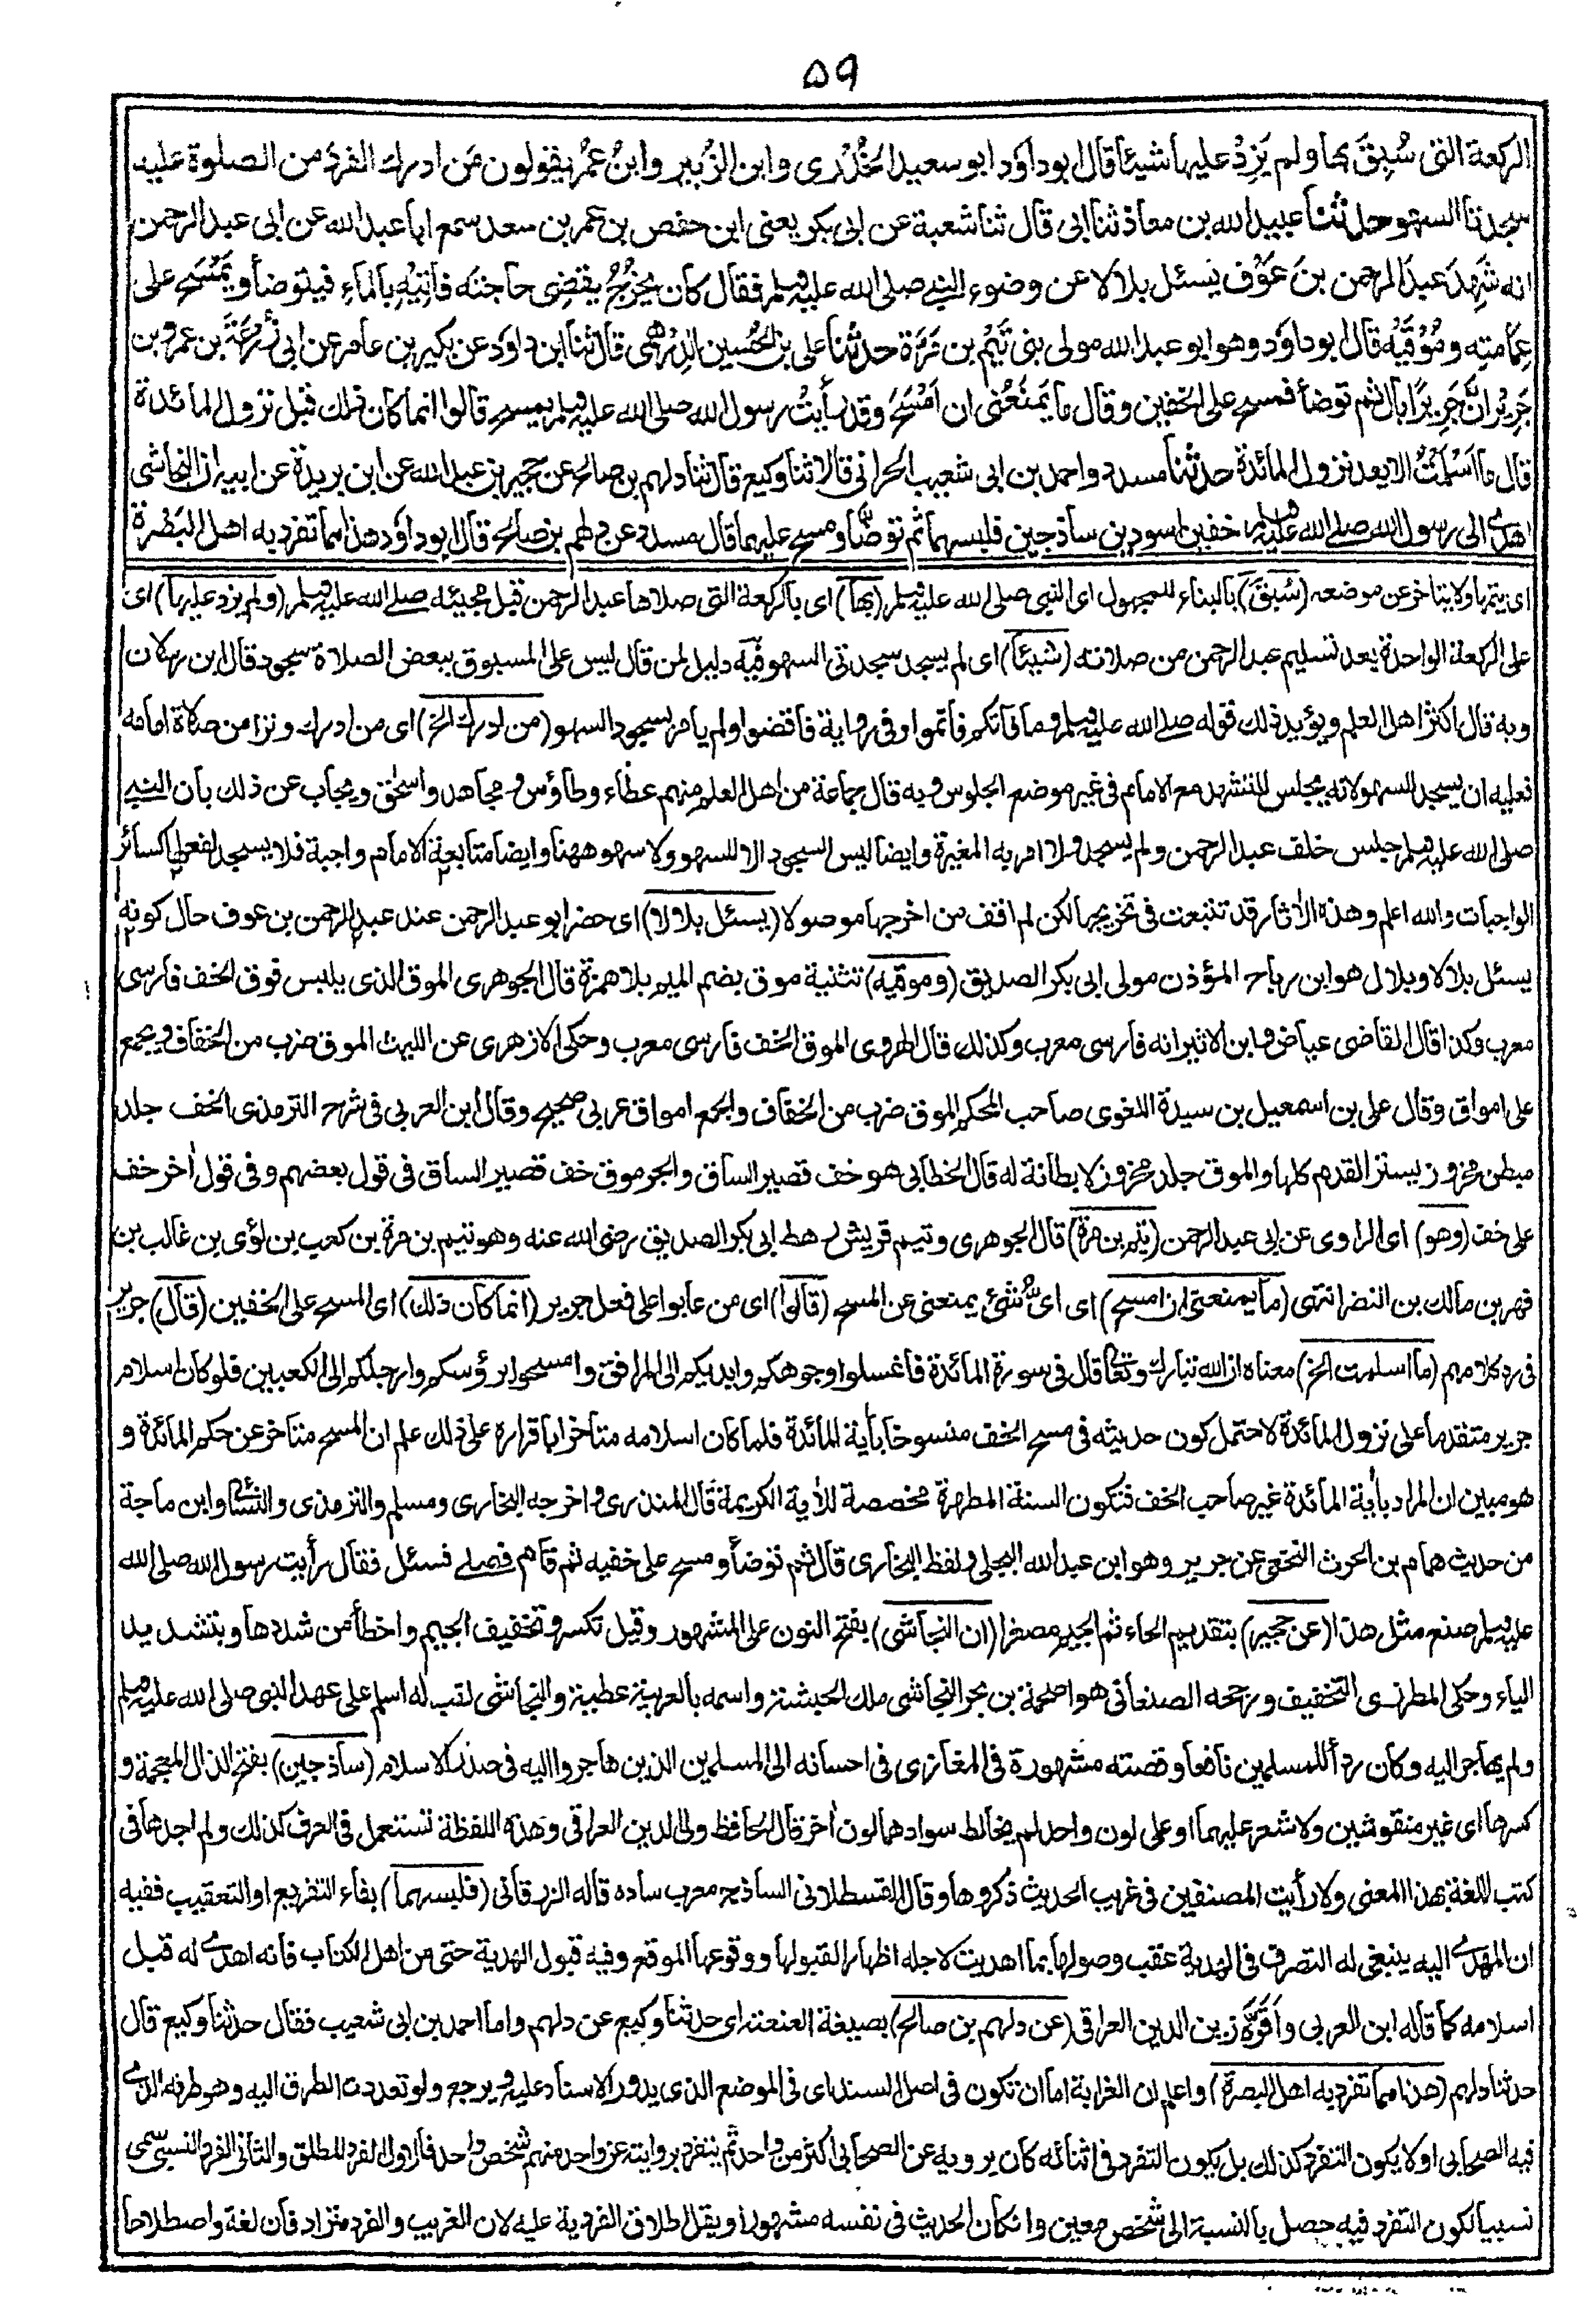 ٥٩
الركعة التى سُبِقَ بها ولم يَزِدْ عليها شيئا قال ابو داود ابو سعيد الخُدْرى وابن الزُبير وابنُ عمر يقولون مَن ادرك الفردَ من الصلوة عليه
سجدتا السهو حدثنا عبيد الله بن معاذ ثنا ابى قال ثنا شعبة عن ابى بكر يعنى ابن حفص بن عمر بن سعد سمع ابا عبد الله عن ابى عبد الرحمن
انه شَهِدَ عبدَ الرحمن بنَ عَوْف يَسئل بلالا عن وضوء النبى صلى الله عليه وسلم فقال كان يَخْرُجُ يقضِى حاجتَه فاتِيْهِ بالماءِ فيتوضأ ويَمْسَح على
عِمَامتِه ومُوْقَيْه قال ابو داود وهو ابو عبد الله مولى بنى تَيْم بن مُرَّة حدثنا على بن الحُسين الدِرْهَمى قال ثنا ابن داود عن بكير بن عامر عن ابى زُرْعَةَ بن عمرو بن
جَرِيْر انّ جَرِيْرًا بال ثم توضأ فمسح على الخفين وقال ما يَمنَعُنى ان اَمْسَحَ وقد رأيتُ رسول الله صلى الله عليه وسلم يمسح قالوا انما كان ذلك قبل نزول المائدة
قال ما اَسْلمتُ الا بعد نزول المائدة حدثنا مسدد واحمد بن ابى شعيب الحرانى قالا ثنا وكيع قال ثنا دلهم بن صالح عن حجير بن عبد الله عن ابن بريدة عن ابيه ان النجاشى
اهدى الى رسول الله صلى الله عليه وسلم خفين اسودين ساذجين فلبسهما ثم توضأ ومسح عليهما قال مسدد عن دلهم بن صالح قال ابو داود هذا مما تفرد به اهل البَصْرة
اى يتمها ولا يتاخر عن موضعه (سُبِقَ) بالبناء للمجهول اى النبى صلى الله عليه وسلم (بها) اى بالركعة التى صلاها عبد الرحمن قبل مجيئه صلى الله عليه وسلم (ولم يزد عليها) اى
على الركعة الواحدة بعد تسليم عبد الرحمن من صلاته (شيئا) اى لم يسجد سجدتى السهو فيه دليل لمن قال ليس على المسبوق ببعض الصلاة سجود قال ابن رسلان
وبه قال اكثر اهل العلم ويؤيد ذلك قوله صلى الله عليه وسلم وما فاتكم فاتموا وفى رواية فاقضوا ولم يامر بسجود السهو (من ادرك الخ) اى من ادرك وترا من صلاة امامه
فعليه ان يسجد للسهو لانه يجلس للتشهد مع الامام فى غير موضع الجلوس وبه قال جماعة من اهل العلم منهم عطاء وطاؤس ومجاهد واسحٰق ويجاب عن ذلك بان النبى
صلى الله عليه وسلم جلس خلف عبد الرحمن ولم يسجد ولا امر به المغيرة وايضا ليس السجود الا للسهو ولا سهو ههنا وايضا متابعة الامام واجبة فلا يسجد لفعلها كسائر
الواجبات والله اعلم وهذه الآثار قد تتبعت فى تخريجها لكن لم اقف من اخرجها موصولا (يسئل بلالا) اى حضر ابو عبد الرحمن عند عبد الرحمن بن عوف حال كونه
يسئل بلالا وبلال هو ابن رباح المؤذن مولى ابى بكر الصديق (وموقيه) تثنية موق بضم الميم بلا همزة قال الجوهرى الموق الذى يلبس فوق الخف فارسى
معرب وكذا قال القاضى عياض وابن الاثير انه فارسى معرب وكذلك قال الهروى الموق الخف فارسى معرب وحكى الازهرى عن الليث الموق ضرب من الخفاف ويجمع
على امواق وقال على بن اسمعيل بن سيدة اللغوى صاحب المحكم الموق ضرب من الخفاف والجمع امواق عربى صحيح وقال ابن العربى فى شرح الترمذى الخف جلد
مبطن مخروز يستر القدم كلها والموق جلد مخروز لا بطانة له قال الخطابى هو خف قصير الساق والجرموق خف قصير الساق فى قول بعضهم وفى قول اٰخر خف
على خف (وهو) اى الراوى عن ابى عبد الرحمن (تيم بن مرة) قال الجوهرى وتيم قريش رهط ابى بكر الصديق رضى الله عنه وهو تيم بن مرة بن كعب بن لؤى بن غالب بن
فهر بن مالك بن النضر انتهى (ما يمنعنى ان امسح) اى اى شئ يمنعنى عن المسح (قالوا) اى من عابوا على فعل جرير (انما كان ذلك) اى المسح على الخفين (قال) جرير
فى رد كلامهم (ما اسلمت الخ) معناه ان الله تبارك وتعالى قال فى سورة المائدة فاغسلوا وجوهكم وايديكم الى المرافق وامسحوا برؤسكم وارجلكم الى الكعبين فلو كان اسلام
جرير متقدما على نزول المائدة لاحتمل كون حديثه فى مسح الخف منسوخا باٰية المائدة فلما كان اسلامه متاخرا باقراره على ذلك علم ان المسح متاخر عن حكم المائدة و
هو مبين ان المراد باٰية المائدة غير صاحب الخف فتكون السنة المطهرة مخصصة للاٰية الكريمة قال المنذرى واخرجه البخارى ومسلم والترمذى والنسائى وابن ماجة
من حديث همام بن الحرث النخعى عن جرير وهو ابن عبد الله البجلى ولفظ البخارى قال ثم توضأ ومسح على خفيه ثم قام فصلى فسئل فقال رأيت رسول الله صلى الله
عليه وسلم صنع مثل هذا (عن حجير) بتقديم الحاء ثم الجيم مصغرا (ان النجاشى) بفتح النون على المشهور وقيل تكسر وتخفيف الجيم واخطأ من شددها وبتشديد
الياء وحكى المطرزى التخفيف ورجحه الصنعانى هو اصحمة بن بحر النجاشى ملك الحبشة واسمه بالعربية عطية والنجاشى لقب له اسلم على عهد النبى صلى الله عليه وسلم
ولم يهاجر اليه وكان ردأ للمسلمين نافعا وقصته مشهورة فى المغازى فى احسانه الى المسلمين الذين هاجروا اليه فى صدر الاسلام (ساذجين) بفتح الذال المعجمة و
كسرها اى غير منقوشين ولا شعر عليهما او على لون واحد لم يخالط سوادهما لون اٰخر قال الحافظ ولى الدين العراقى وهذه اللفظة تستعمل فى العرف كذلك ولم اجدها فى
كتب اللغة بهذا المعنى ولا رأيت المصنفين فى غريب الحديث ذكروها وقال القسطلانى الساذج معرب ساده قاله الزرقانى (فلبسهما) بفاء التفريع او التعقيب ففيه
ان المهدى اليه ينبغى له التصرف فى الهدية عقب وصولها بما اهديت لاجله اظهارا لقبولها ووقوعها الموقع وفيه قبول الهدية حتى من اهل الكتاب فانه اهدى له قبل
اسلامه كما قاله ابن العربى واَقَرَّه زين الدين العراقى (عن دلهم بن صالح) بصيغة العنعنة اى حدثنا وكيع عن دلهم واما احمد بن ابى شعيب فقال حدثنا وكيع قال
حدثنا دلهم (هذا مما تفرد به اهل البصرة) واعلم ان الغرابة اما ان تكون فى اصل السند اى فى الموضع الذى يدور الاسناد عليه ويرجع ولو تعددت الطرق اليه وهو طرفه الذى
فيه الصحابى او لا يكون التفرد كذلك بل يكون التفرد فى اثنائه كان يرويه عن الصحابى اكثر من واحد ثم يتفرد بروايته عن واحد منهم شخص واحد فالاول الفرد المطلق والثانى الفرد النسبى سمى
نسبيا لكون التفرد فيه حصل بالنسبة الى شخص معين وان كان الحديث فى نفسه مشهورا ويقل اطلاق الفردية عليه لان الغريب والفرد مترادفان لغة واصطلاحا